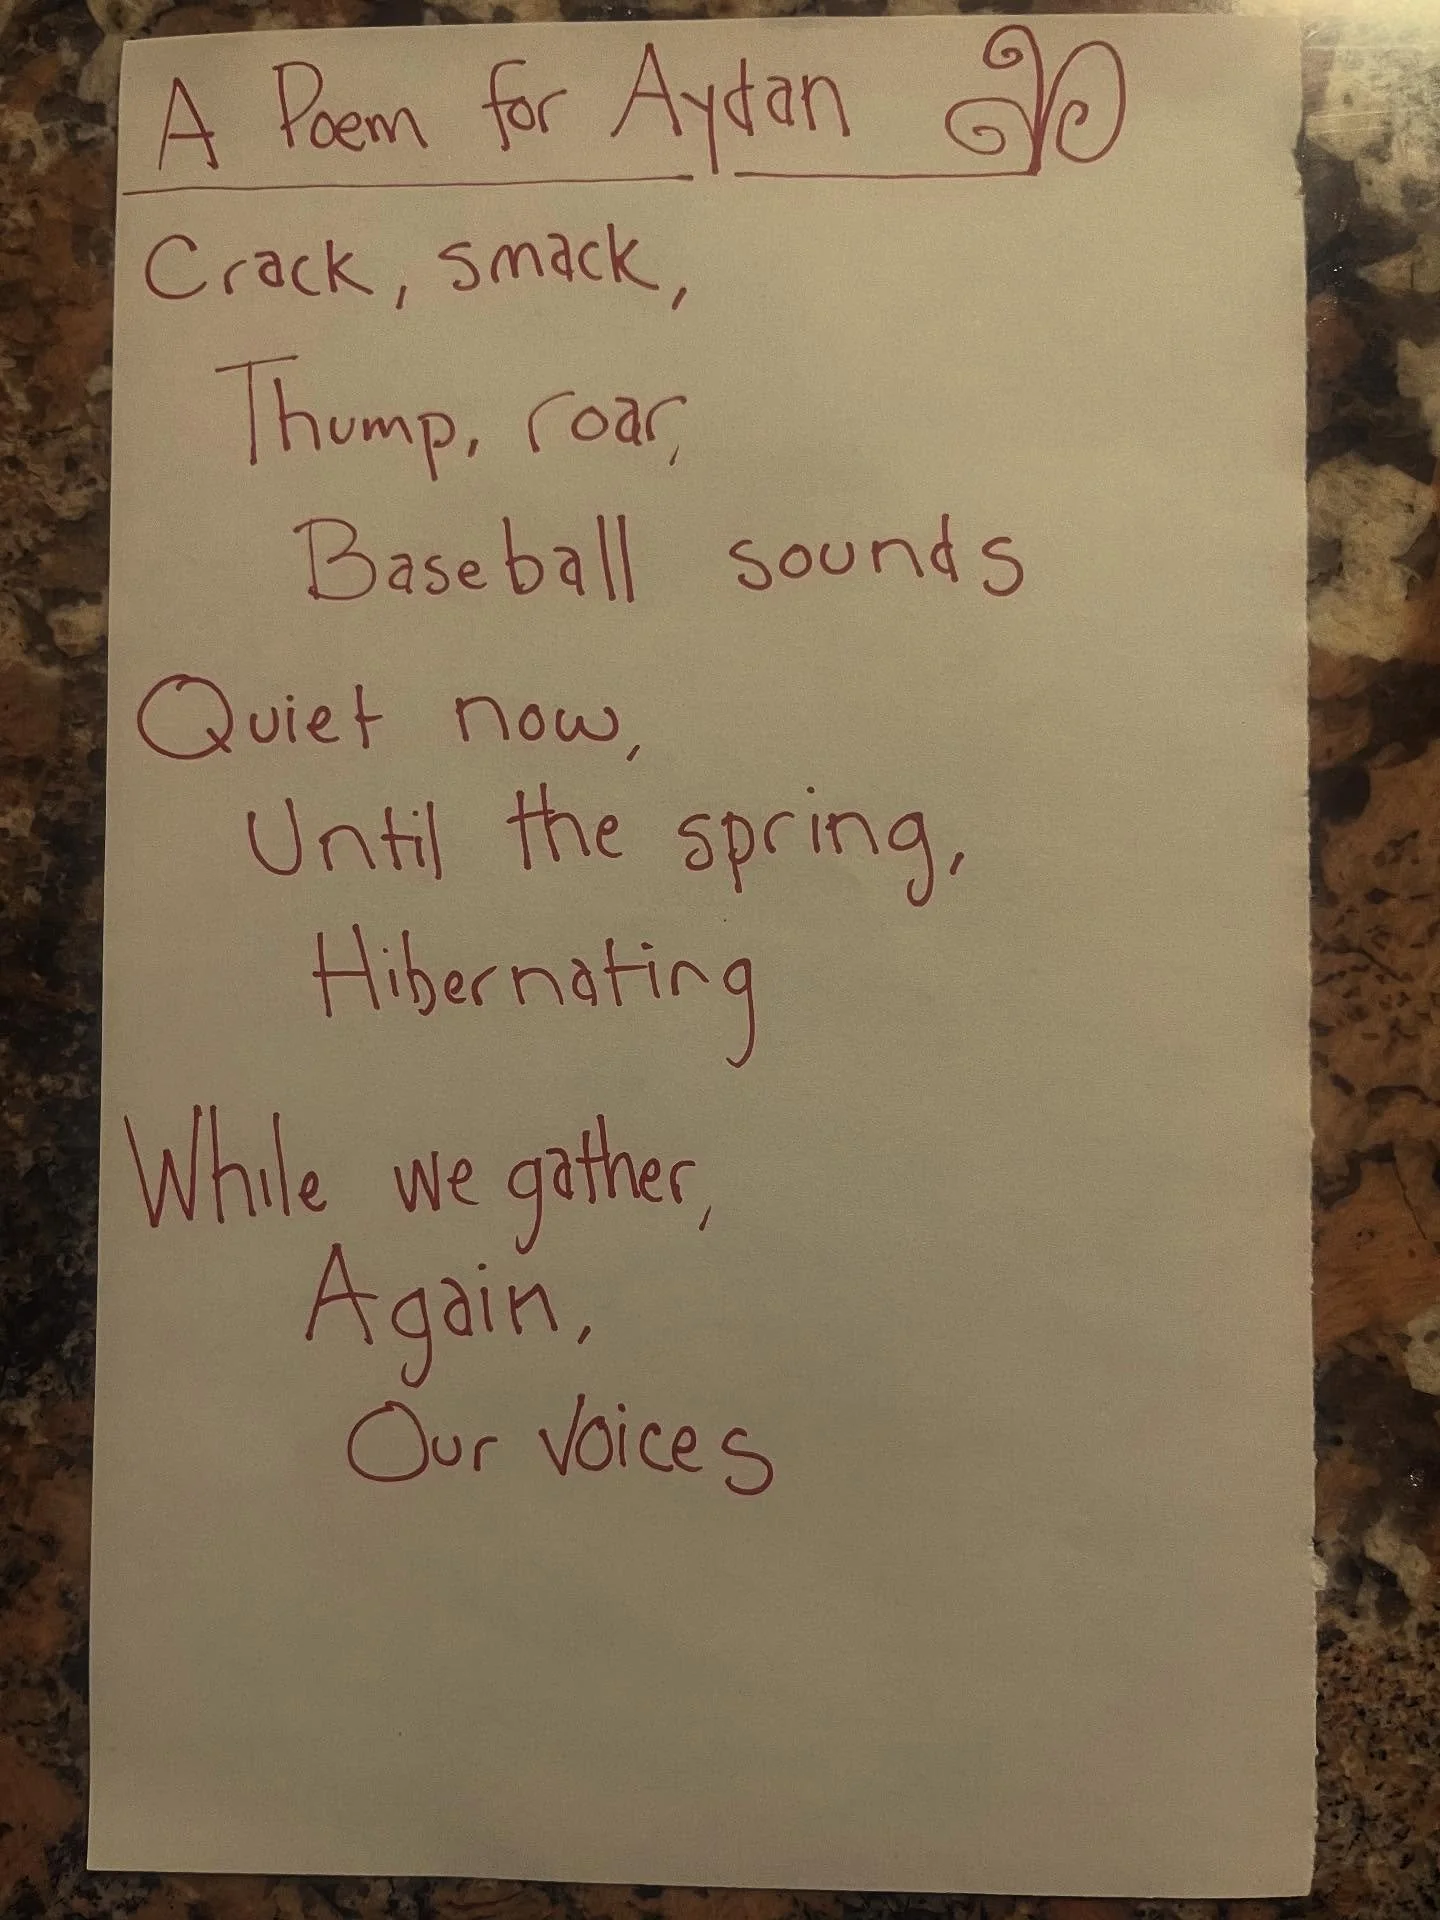 A Poem for Aydan
Crack, smack,
Thump, roar,
Baseball sounds
Quiet now,
Until the spring,
Hibernating
While we gather,
Again,
Our voices